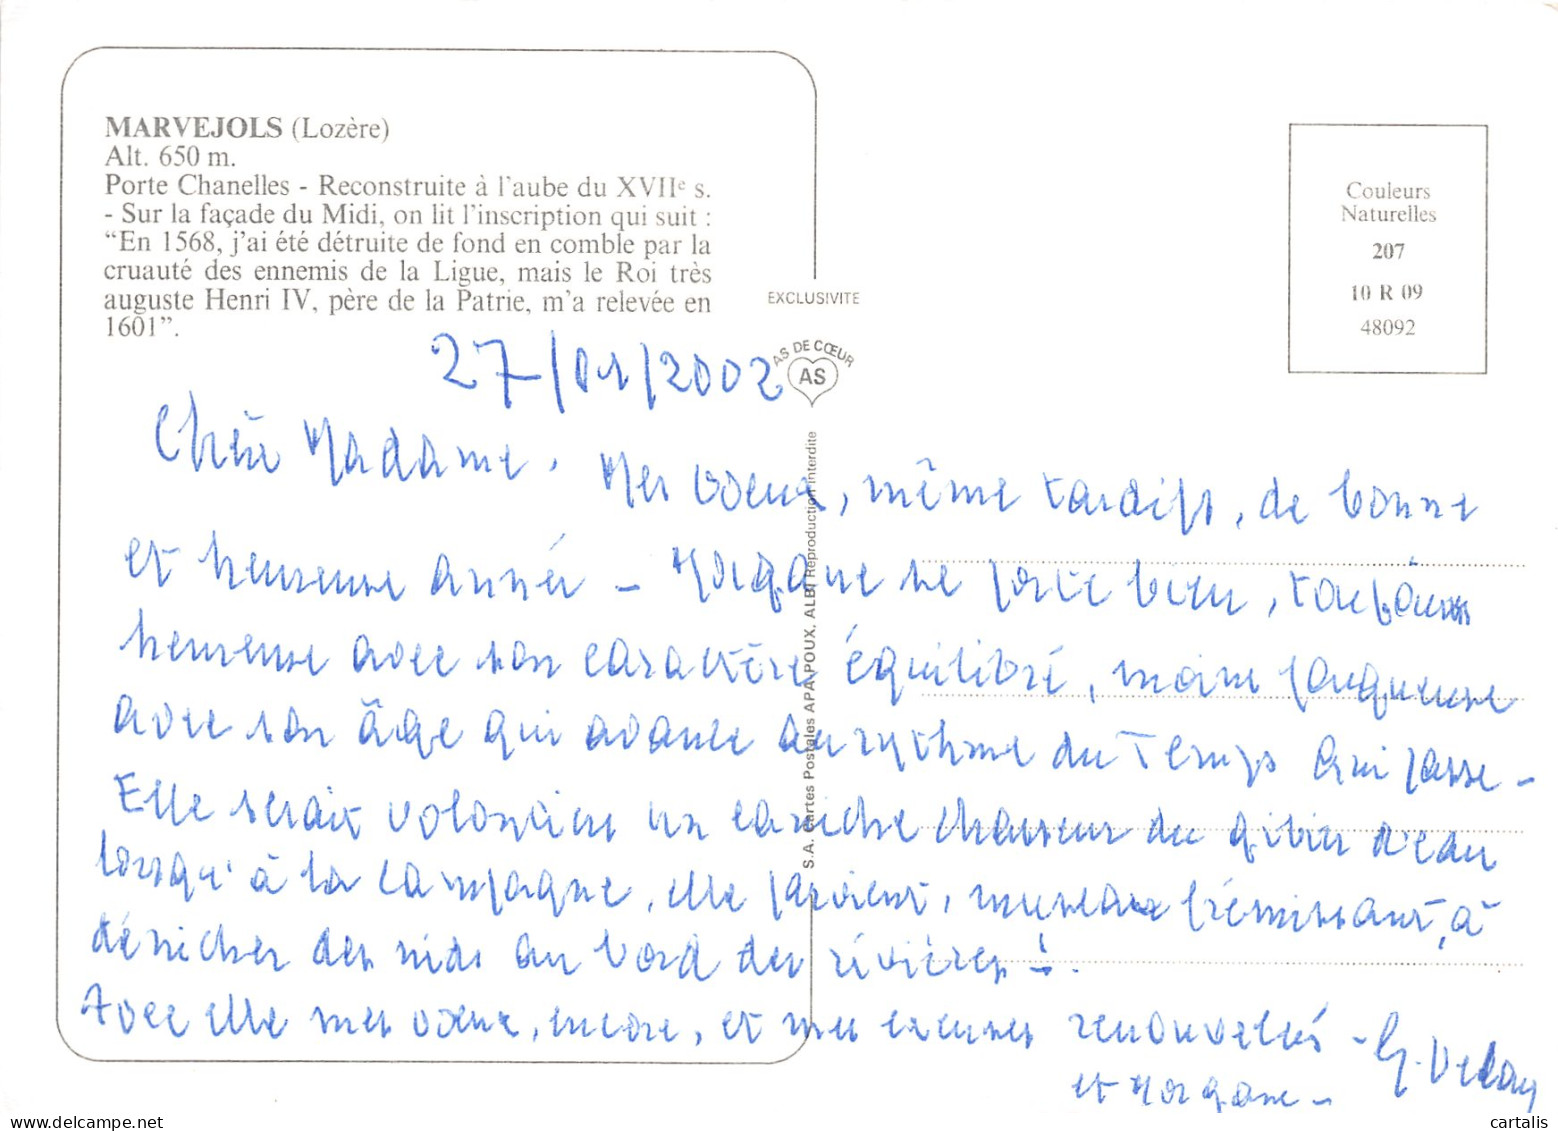 MARVEJOLS (Lozère)
Alt. 650 m.
Porte Chanelles - Reconstruite à l'aube du XVIIe s.
- Sur la façade du Midi, on lit l'inscription qui suit :
“En 1568, j'ai été détruite de fond en comble par la
cruauté des ennemis de la Ligue, mais le Roi très
auguste Henri IV, père de la Patrie, m'a relevée en
1601”.
EXCLUSIVITE
AS DE CŒUR
AS
S.A. Cartes Postales APA-POUX, ALBI Reproduction interdite
Couleurs
Naturelles
207
10 R 09
48092
27/01/2002
Chère Madame. Mes voeux, même tardifs, de bonne
et heureuse année – Morgane se porte bien, toujours
heureuse avec son caractère équilibré, moins fougueuse
avec son âge qui avance au rythme du Temps qui passe –
Elle serait volontiers un caniche chasseur du gibier d'eau
lorsqu'à la campagne, elle parvient, museau frémissant, à
dénicher des nids au bord des rivières !
Avec elle mes voeux, encore, et mes excuses renouvelées –
et Morgane –
cartalis